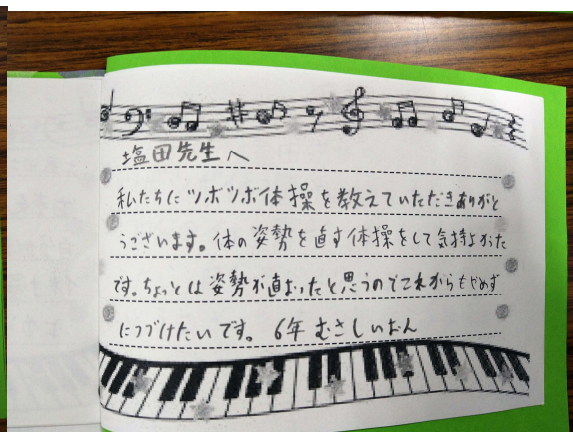 塩田先生へ
私たちにツボツボ体操を教えていただきありがと
うございます。体の姿勢を直す体操をして気持よかった
です。ちょっとは姿勢が直よったと思うのでこれからもやめず
につづけたいです。 6年 むさし いおん